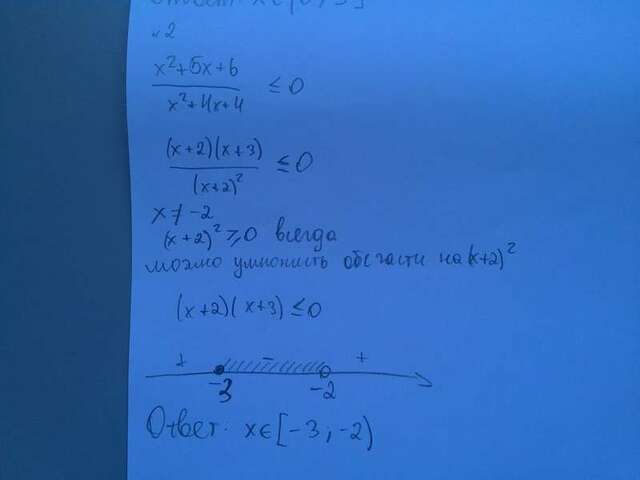 №2
x²+5x+6
x²+4x+4 ≤ 0
(x+2)(x+3)
(x+2)² ≤ 0
x ≠ -2
(x+2)² ≥ 0 всегда
можно умножить обе части на (x+2)²
(x+2)(x+3) ≤ 0
+ - +
-3 -2
Ответ: x∈[-3;-2)